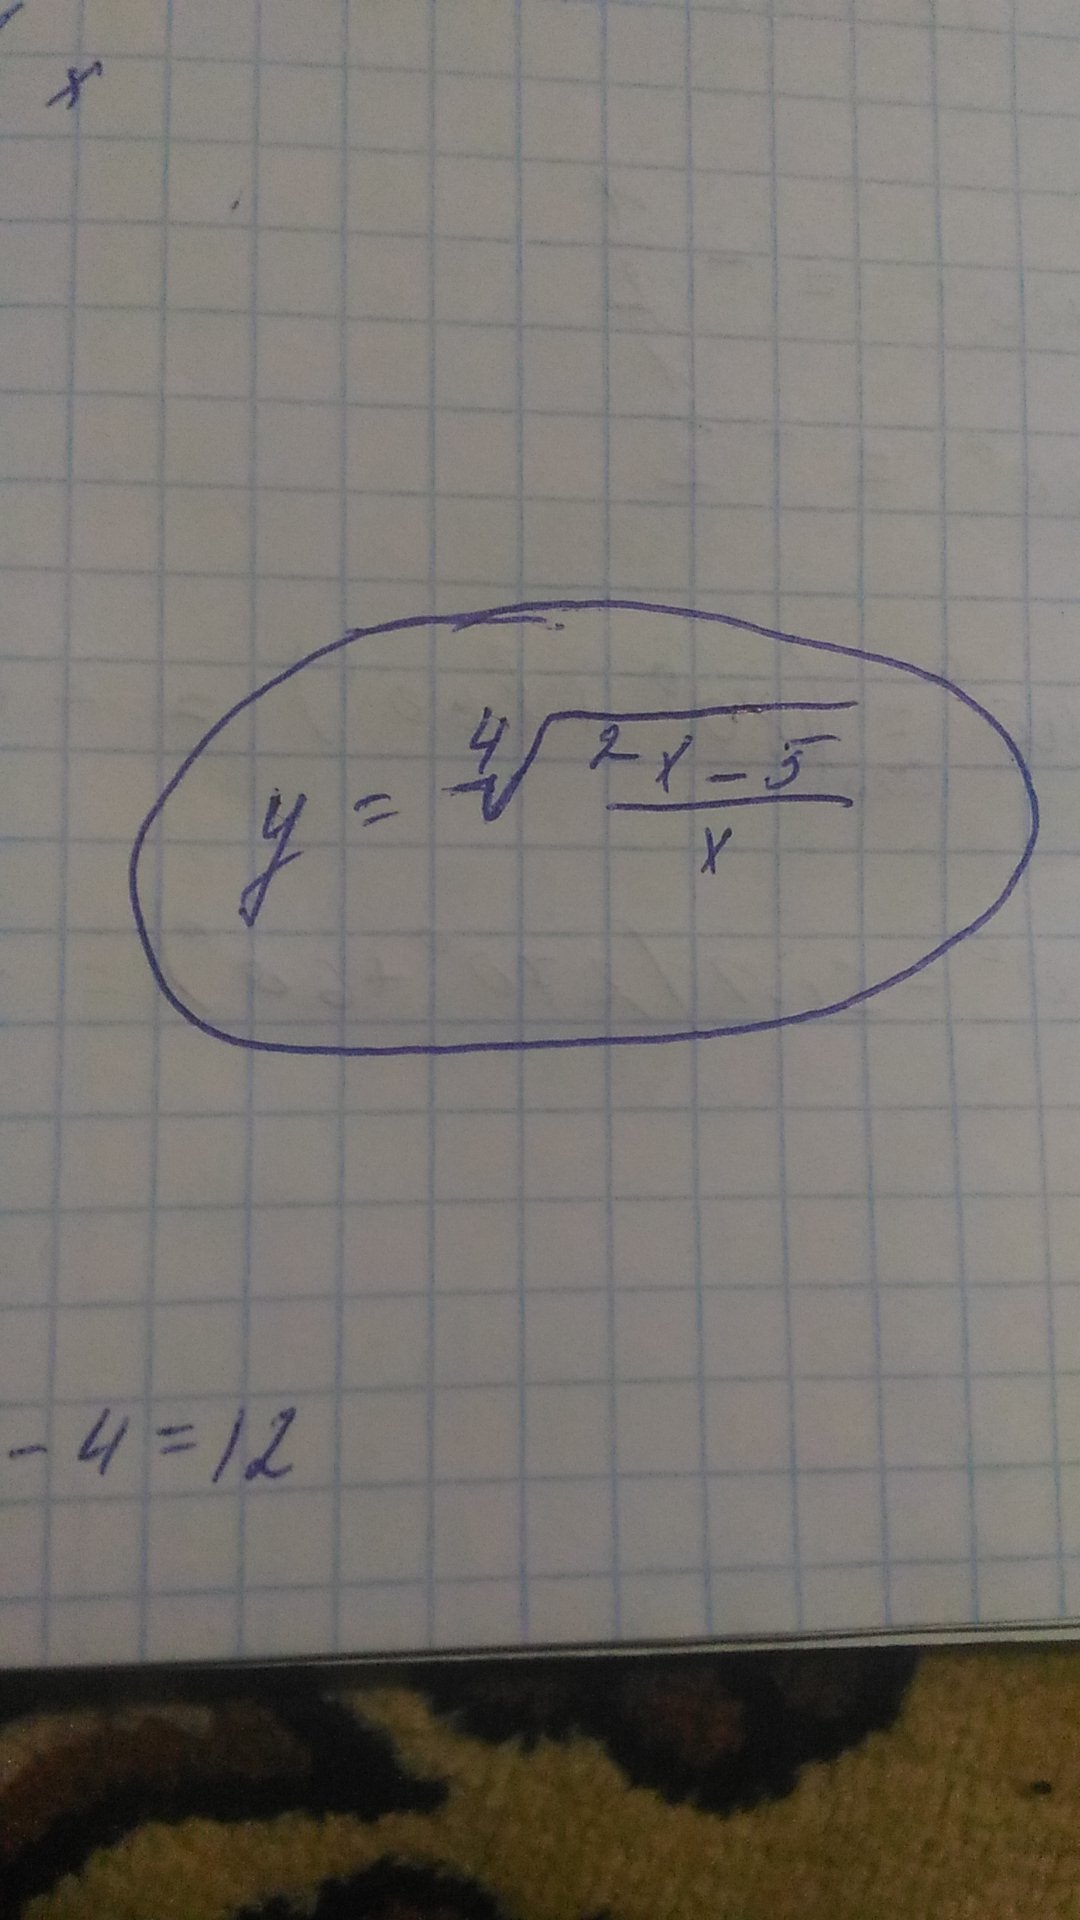 x
y = ⁴√((2x - 5)/x)
- 4 = 12